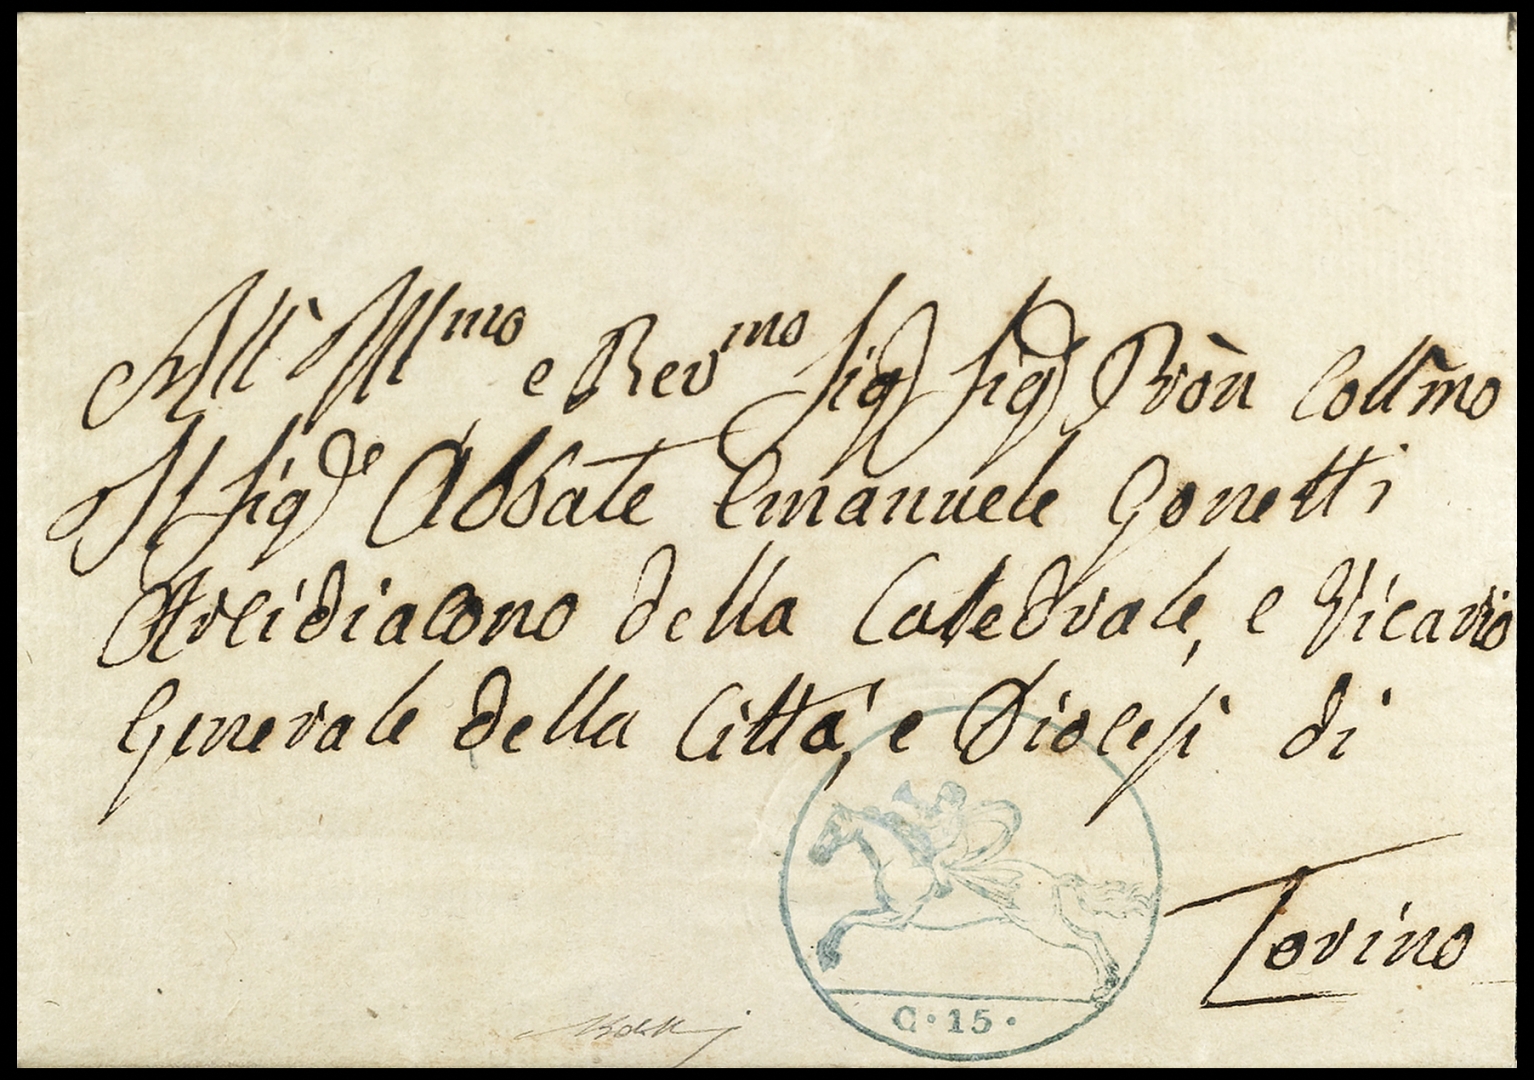 All' Ill.mo e Rev.mo Sig.r Sig.r Pròn Coll.mo
Il Sig.r Abbate Emanuele Gonetti
Arcidiacono della Catedrale, e Vicario
Generale della Città, e Diocesi di
Torino
C · 15 ·